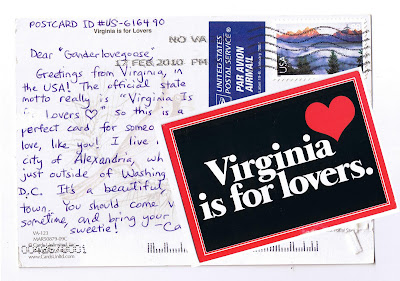 POSTCARD ID #US-616490
Virginia is for Lovers
NO VA
17 FEB 2010 PM
Dear "Ganderlovegoose"
Greetings from Virginia, in
the USA! The official state
motto really is "Virginia Is
Lovers ♡" so this is a
perfect card for someo
love, like you! I live
city of Alexandria, wh
just outside of Washing
D.C. It's a beautiful,
town. You should come v
sometime, and bring your
sweetie! -Ca
UNITED STATES
POSTAL SERVICE®
PAR AVION
AIRMAIL
USA
Virginia
is for lovers.
VA-121